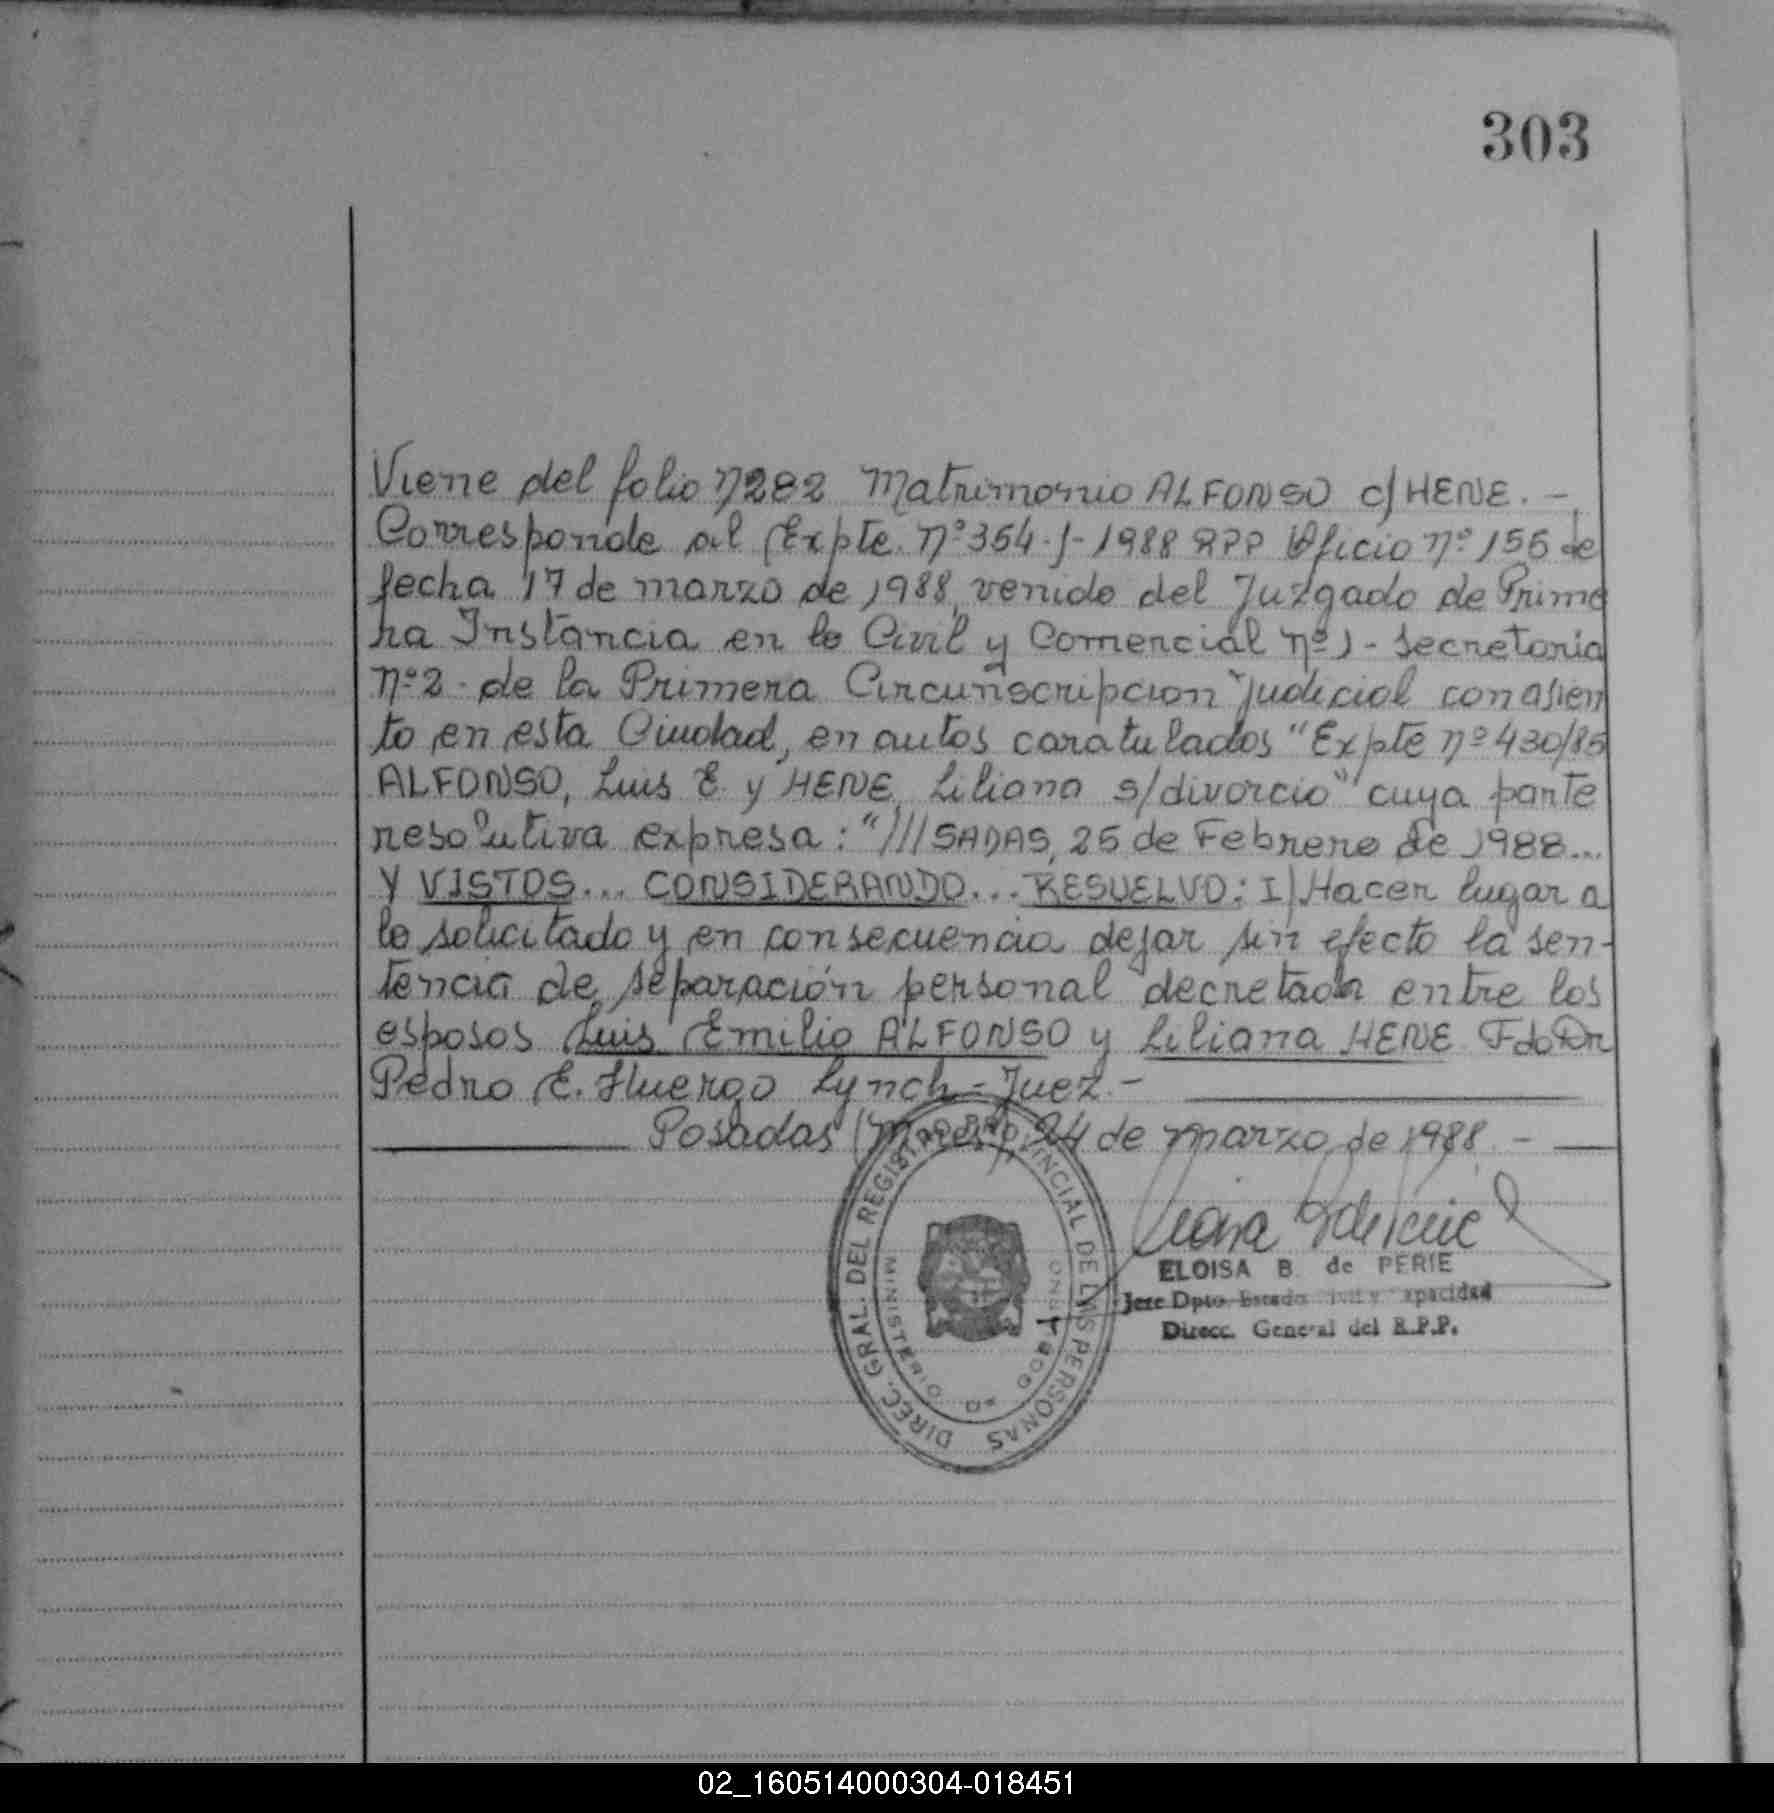 303
Viene del folio n282 Matrimonio ALFONSO c/HENE. -
Corresponde al Expte. Nº 354-J-1988 RPP Oficio nº 156 de
fecha 17 de marzo de 1988, venido del Juzgado de Prime
ra Instancia en lo Civil y Comercial nº1 - Secretaria
Nº2 - de la Primera Circunscripcion Judicial con asien
to en esta Ciudad, en autos caratulados "Expte nº 430/85
ALFONSO, Luis E. y HENE, Liliana s/divorcio" cuya parte
resolutiva expresa: "///SADAS, 25 de Febrero de 1988...
Y VISTOS... CONSIDERANDO... RESUELVO: I) Hacer lugar a
lo solicitado y en consecuencia dejar sin efecto la sen-
tencia de separación personal decretada entre los
esposos Luis Emilio ALFONSO y Liliana HENE Fdo Dr
Pedro E. Huergo Lynch - Juez. -
Posadas (Mnes), 24 de marzo de 1988. -
DIREC. GRAL. DEL REGISTRO PROVINCIAL DE LAS PERSONAS
MINISTERIO DE GOBIERNO
ELOISA B. de PERIE
Jefe Dpto. Estado Civil y Capacidad
Direcc. General del R.P.P.
02_160514000304-018451